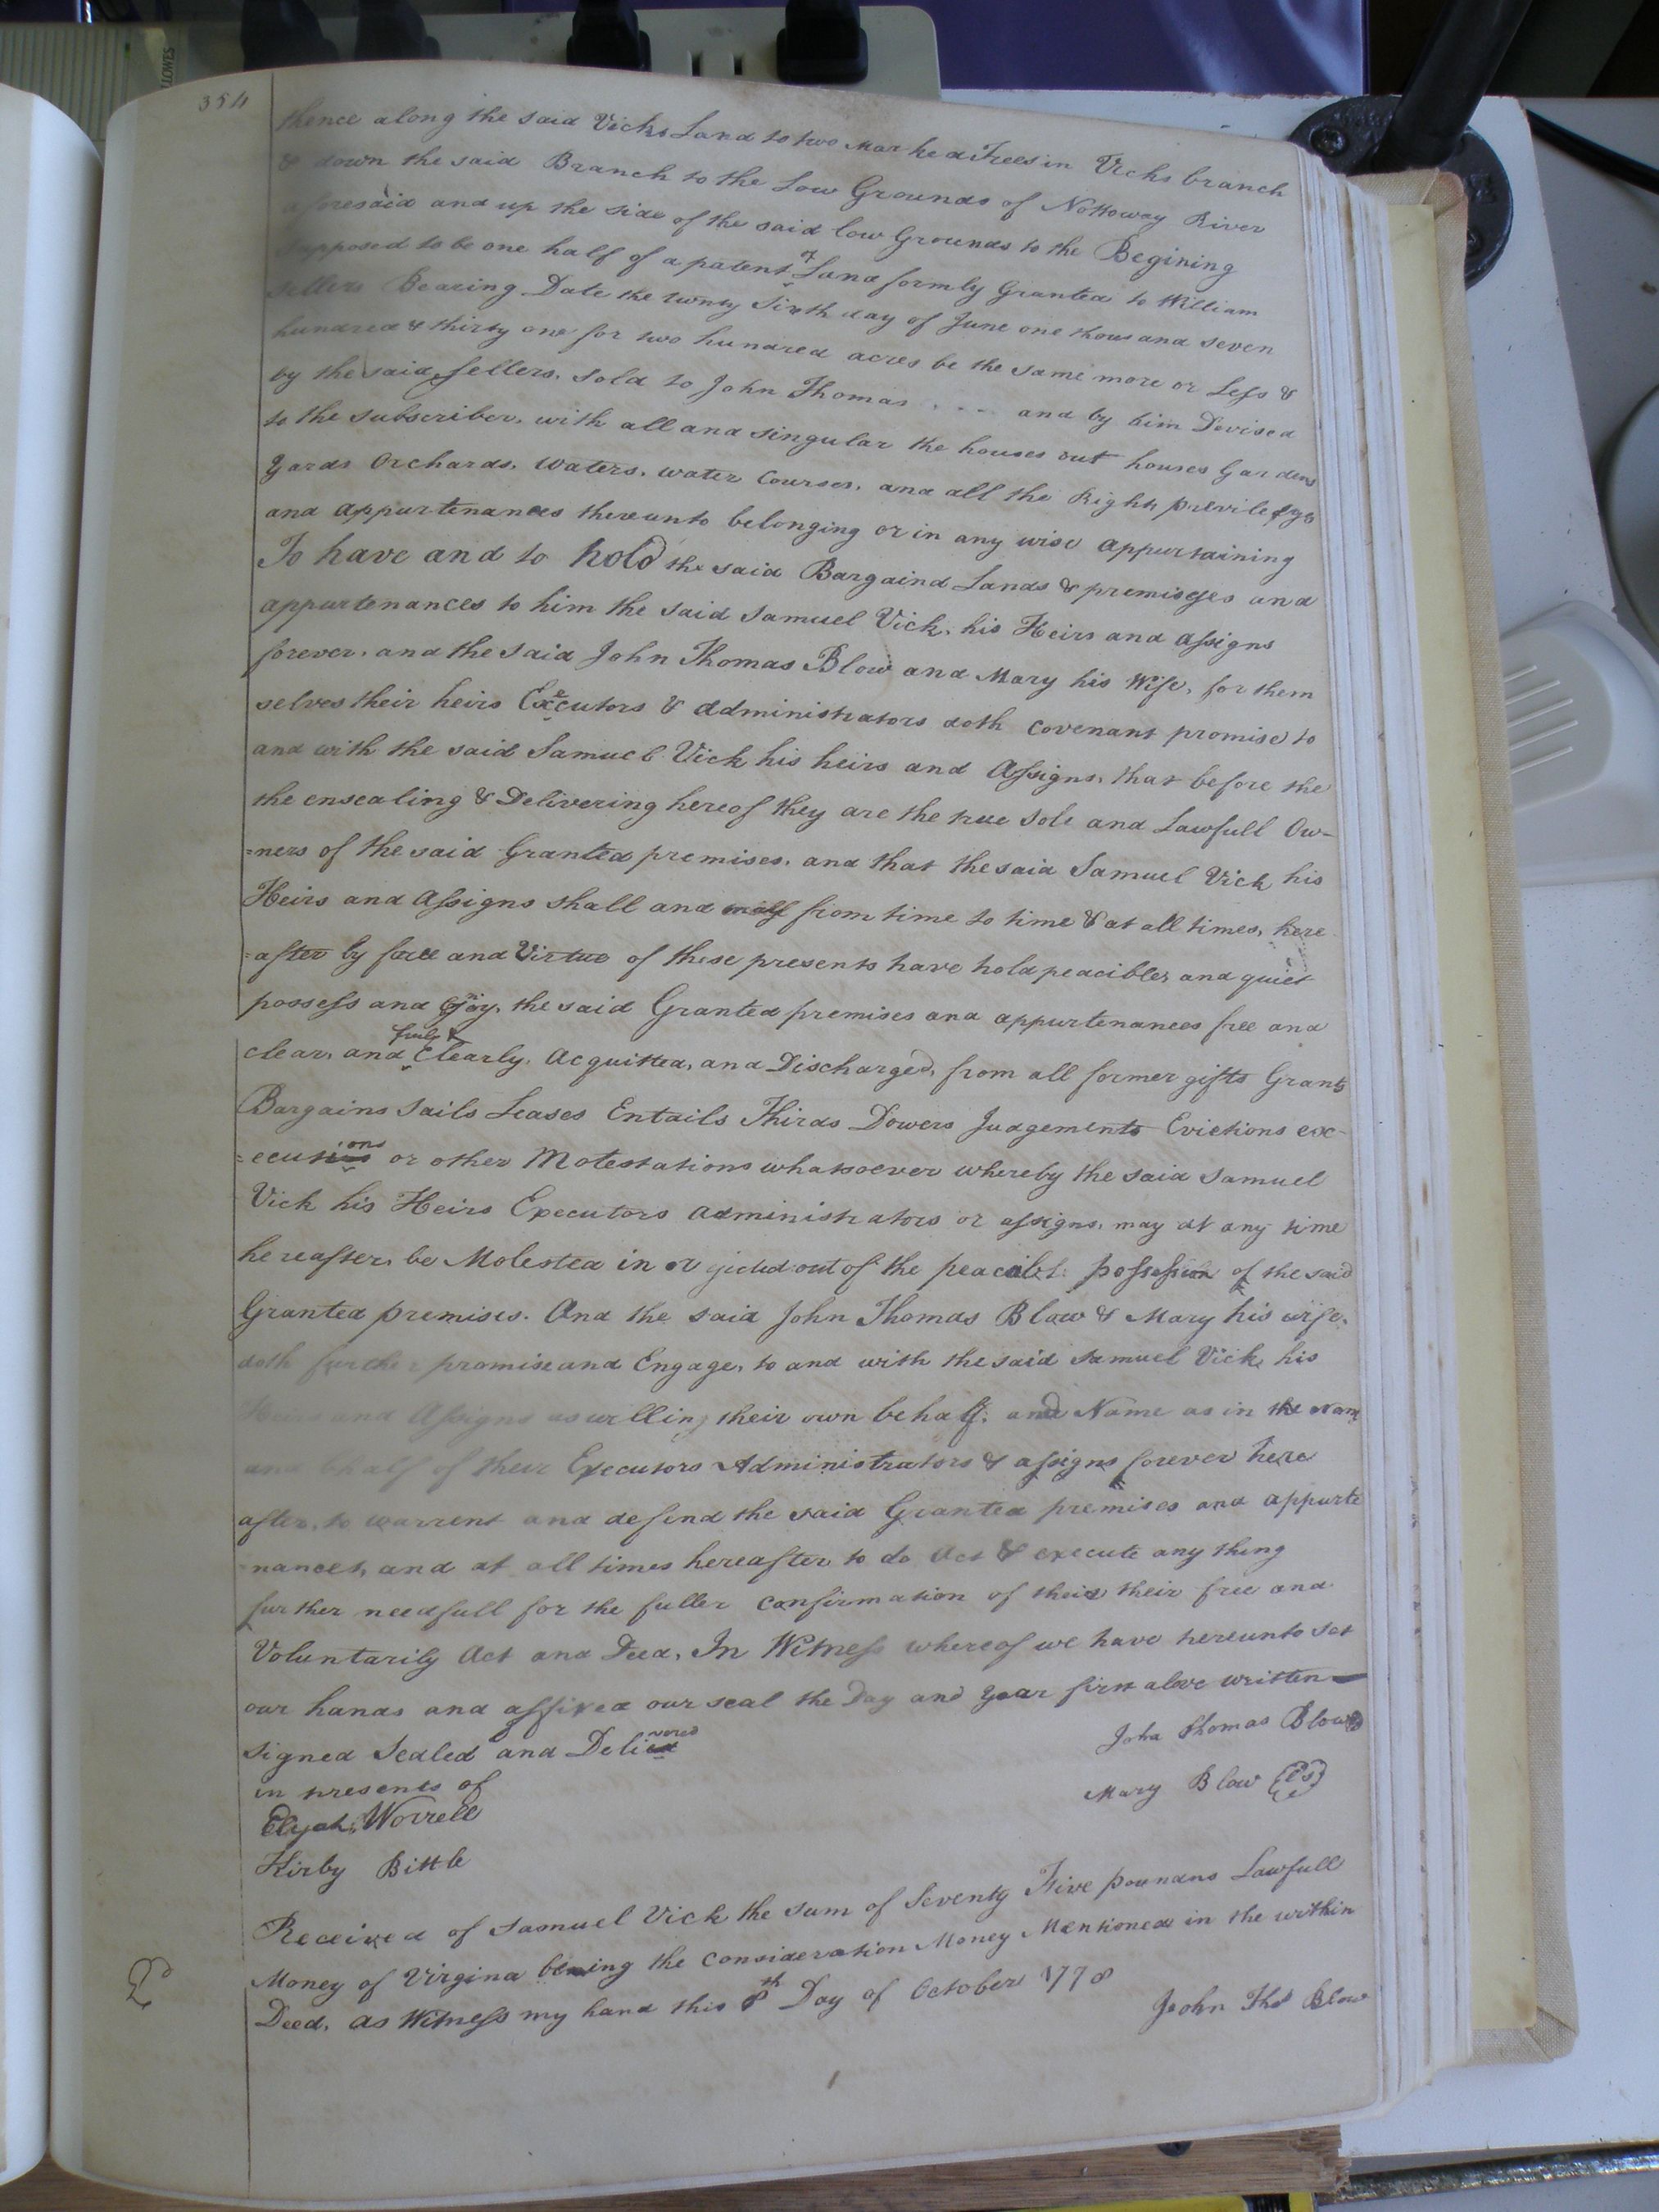 354
thence along the said Vicks Land to two Marked Trees in Vicks branch
& down the said Branch to the Low Grounds of Nottoway River
aforesaid and up the side of the said low Grounds to the Begining
supposed to be one half of a patent of Land formly Granted to William
Sellers Bearing Date the twenty Sixth day of June one thousand seven
hundred & thirty one for two hundred acres be the same more or Less &
by the said Sellers, sold to John Thomas . . . and by him Devised
to the subscriber, with all and singular the houses out houses Gardens
yards Orchards, Waters, water Courses, and all the Rights
and appurtenances thereunto belonging or in any wise appurtaining
To have and to hold the said Bargaind Lands & premisses and
appurtenances to him the said Samuel Vick, his Heirs and Assigns
forever, and the said John Thomas Blow and Mary his Wife, for them
selves their heirs Executors & administrators doth covenant promise to
and with the said Samuel Vick his heirs and Assigns, that before the
the ensealing & Delivering hereof they are the true Sole and Lawfull Ow-
=ners of the said Granted premises, and that the said Samuel Vick his
Heirs and Assigns shall and may from time to time & at all times, here
=after by force and Virtue of these presents have hold peacibley and quiet
possess and Enjoy, the said Granted premises and appurtenances free and
clear, and fully & Clearly, Acquitted, and Discharged, from all former gifts Grants
Bargains Sails Leases Entails Thirds Dowers Judgements Evictions exc-
=ecutions or other Motestations whatsoever whereby the said Samuel
Vick his Heirs Executors administrators or assigns, may at any time
hereafter, be Molested in or out of the peacable possession of the said
Granted premises. And the said John Thomas Blow & Mary his wife,
doth further promise and Engage, to and with the said Samuel Vick, his
Heirs and Assigns as well in their own behalf, and Name as in the Name
and behalf of their Executors Administrators & assigns forever here
after, to warrent and defend the said Granted premises and appurte
=nances, and at all times hereafter to do Act & execute any thing
further needfull for the fuller Confirmation of their free and
Voluntarily Act and Deed, In Witness whereof we have hereunto set
our hands and affixed our seal the Day and year first above written
John Thomas Blow
signed Sealed and Delivered
in presents of
Mary Blow (LS)
Elijah Worrell
Kirby Bittle
Received of Samuel Vick the sum of Seventy Five pounds Lawfull
Money of Virgina being the Consideration Money Mentioned in the within
Deed, as Witness my hand this 8th Day of October 1778
John Thos Blow